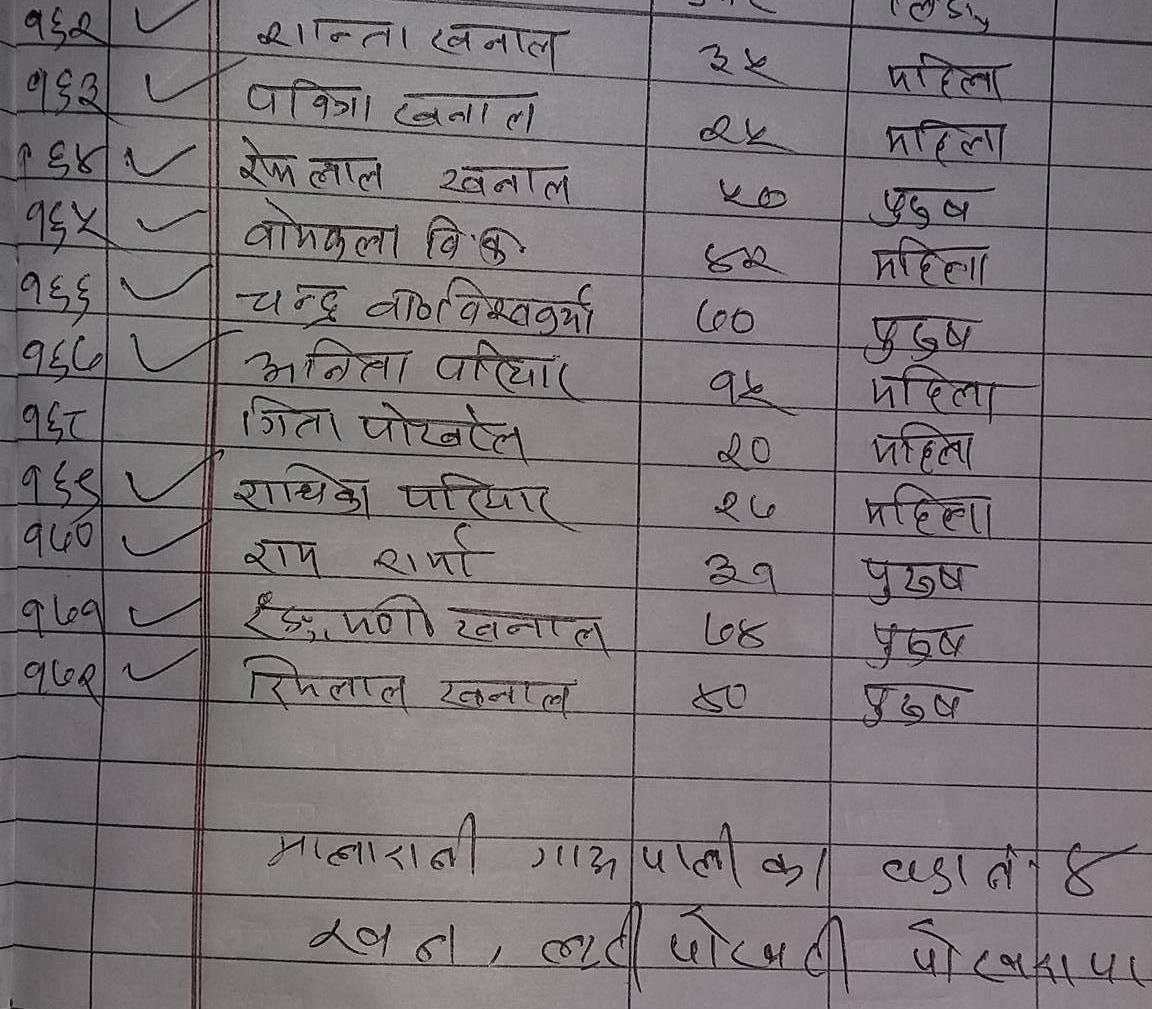 १६२ शान्ता खनाल ३५ महिला
१६३ पवित्रा खनाल २५ महिला
१६४ रेमलाल खनाल ५० पुरुष
१६५ वोमकला वि.क. ४२ महिला
१६६ चन्द्र वा० विश्वकर्मा ७० पुरुष
१६७ अनिता परियार १५ महिला
१६८ गिता पोखरेल २० महिला
१६९ राधिका परियार २७ महिला
१७० राम शर्मा ३१ पुरुष
१७१ मणी खनाल ७४ पुरुष
१७२ रिमलाल खनाल ४० पुरुष
मालारानी गाउ पाली का वडा नं ४
खन, पोखरी